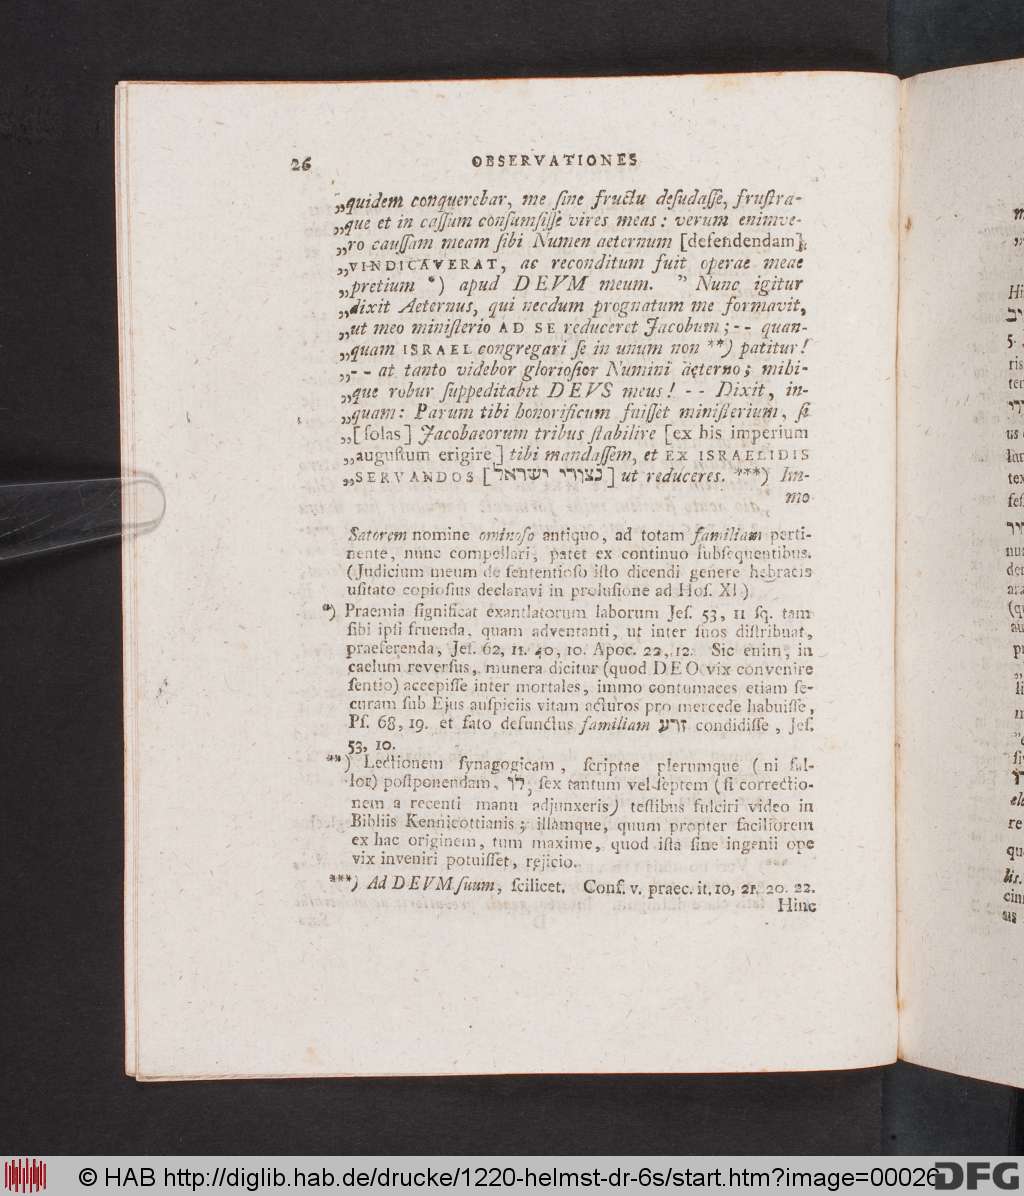 26 OBSERVATIONES
„quidem conquerebar, me ſine fructu deſudaſſe, fruſtra-
„que et in caſſum conſumſiſſe vires meas: verum enimve-
„ro cauſſam meam ſibi Numen aeternum [defendendam]
„VINDICAVERAT, ac reconditum fuit operae meae
„pretium *) apud DEVM meum. ” Nunc igitur
„dixit Aeternus, qui necdum prognatum me formavit,
„ut meo miniſterio AD SE reduceret Jacobum; -- quan-
„quam ISRAEL congregari ſe in unum non **) patitur!
„-- at tanto videbor glorioſior Numini aeterno; mihi-
„que robur ſuppeditabit DEVS meus! -- Dixit, in-
„quam: Parum tibi honorificum fuiſſet miniſterium, ſi
„[ſolas] Jacobaeorum tribus ſtabilire [ex his imperium
„auguſtum erigire] tibi mandaſſem, et EX ISRAELIDIS
„SERVANDOS [נצורי ישראל] ut reduceres. ***) Im-
mo
Satorem nomine ominoſo antiquo, ad totam familiam perti-
nente, nunc compellari, patet ex continuo ſubſequentibus.
(Judicium meum de ſententioſo iſto dicendi genere hebraeis
uſitato copioſius declaravi in proluſione ad Hoſ. XI.)
*) Praemia ſignificat exantlatorum laborum Jeſ. 53, 11 ſq. tam
ſibi ipſi fruenda, quam adventanti, ut inter ſuos diſtribuat,
praeferenda, Jeſ. 62, 11. 40, 10. Apoc. 22, 12. Sic enim, in
caelum reverſus, munera dicitur (quod DEO vix convenire
ſentio) accepiſſe inter mortales, immo contumaces etiam ſe-
curam ſub Ejus auſpiciis vitam acturos pro mercede habuiſſe,
Pſ. 68, 19. et fato defunctus familiam זרע condidiſſe, Jeſ.
53, 10.
**) Lectionem ſynagogicam, ſcriptae plerumque (ni fal-
lor) poſtponendam, לו, ſex tantum vel ſeptem (ſi correctio-
nem a recenti manu adjunxeris) teſtibus fulciri video in
Bibliis Kennicottianis; illamque, quum propter faciliorem
ex hac originem, tum maxime, quod iſta ſine ingenii ope
vix inveniri potuiſſet, rejicio.
***) Ad DEVM ſuum, ſcilicet. Conf. v. praec. it. 10, 21. 20. 22.
Hinc
© HAB http://diglib.hab.de/drucke/1220-helmst-dr-6s/start.htm?image=00026
DFG